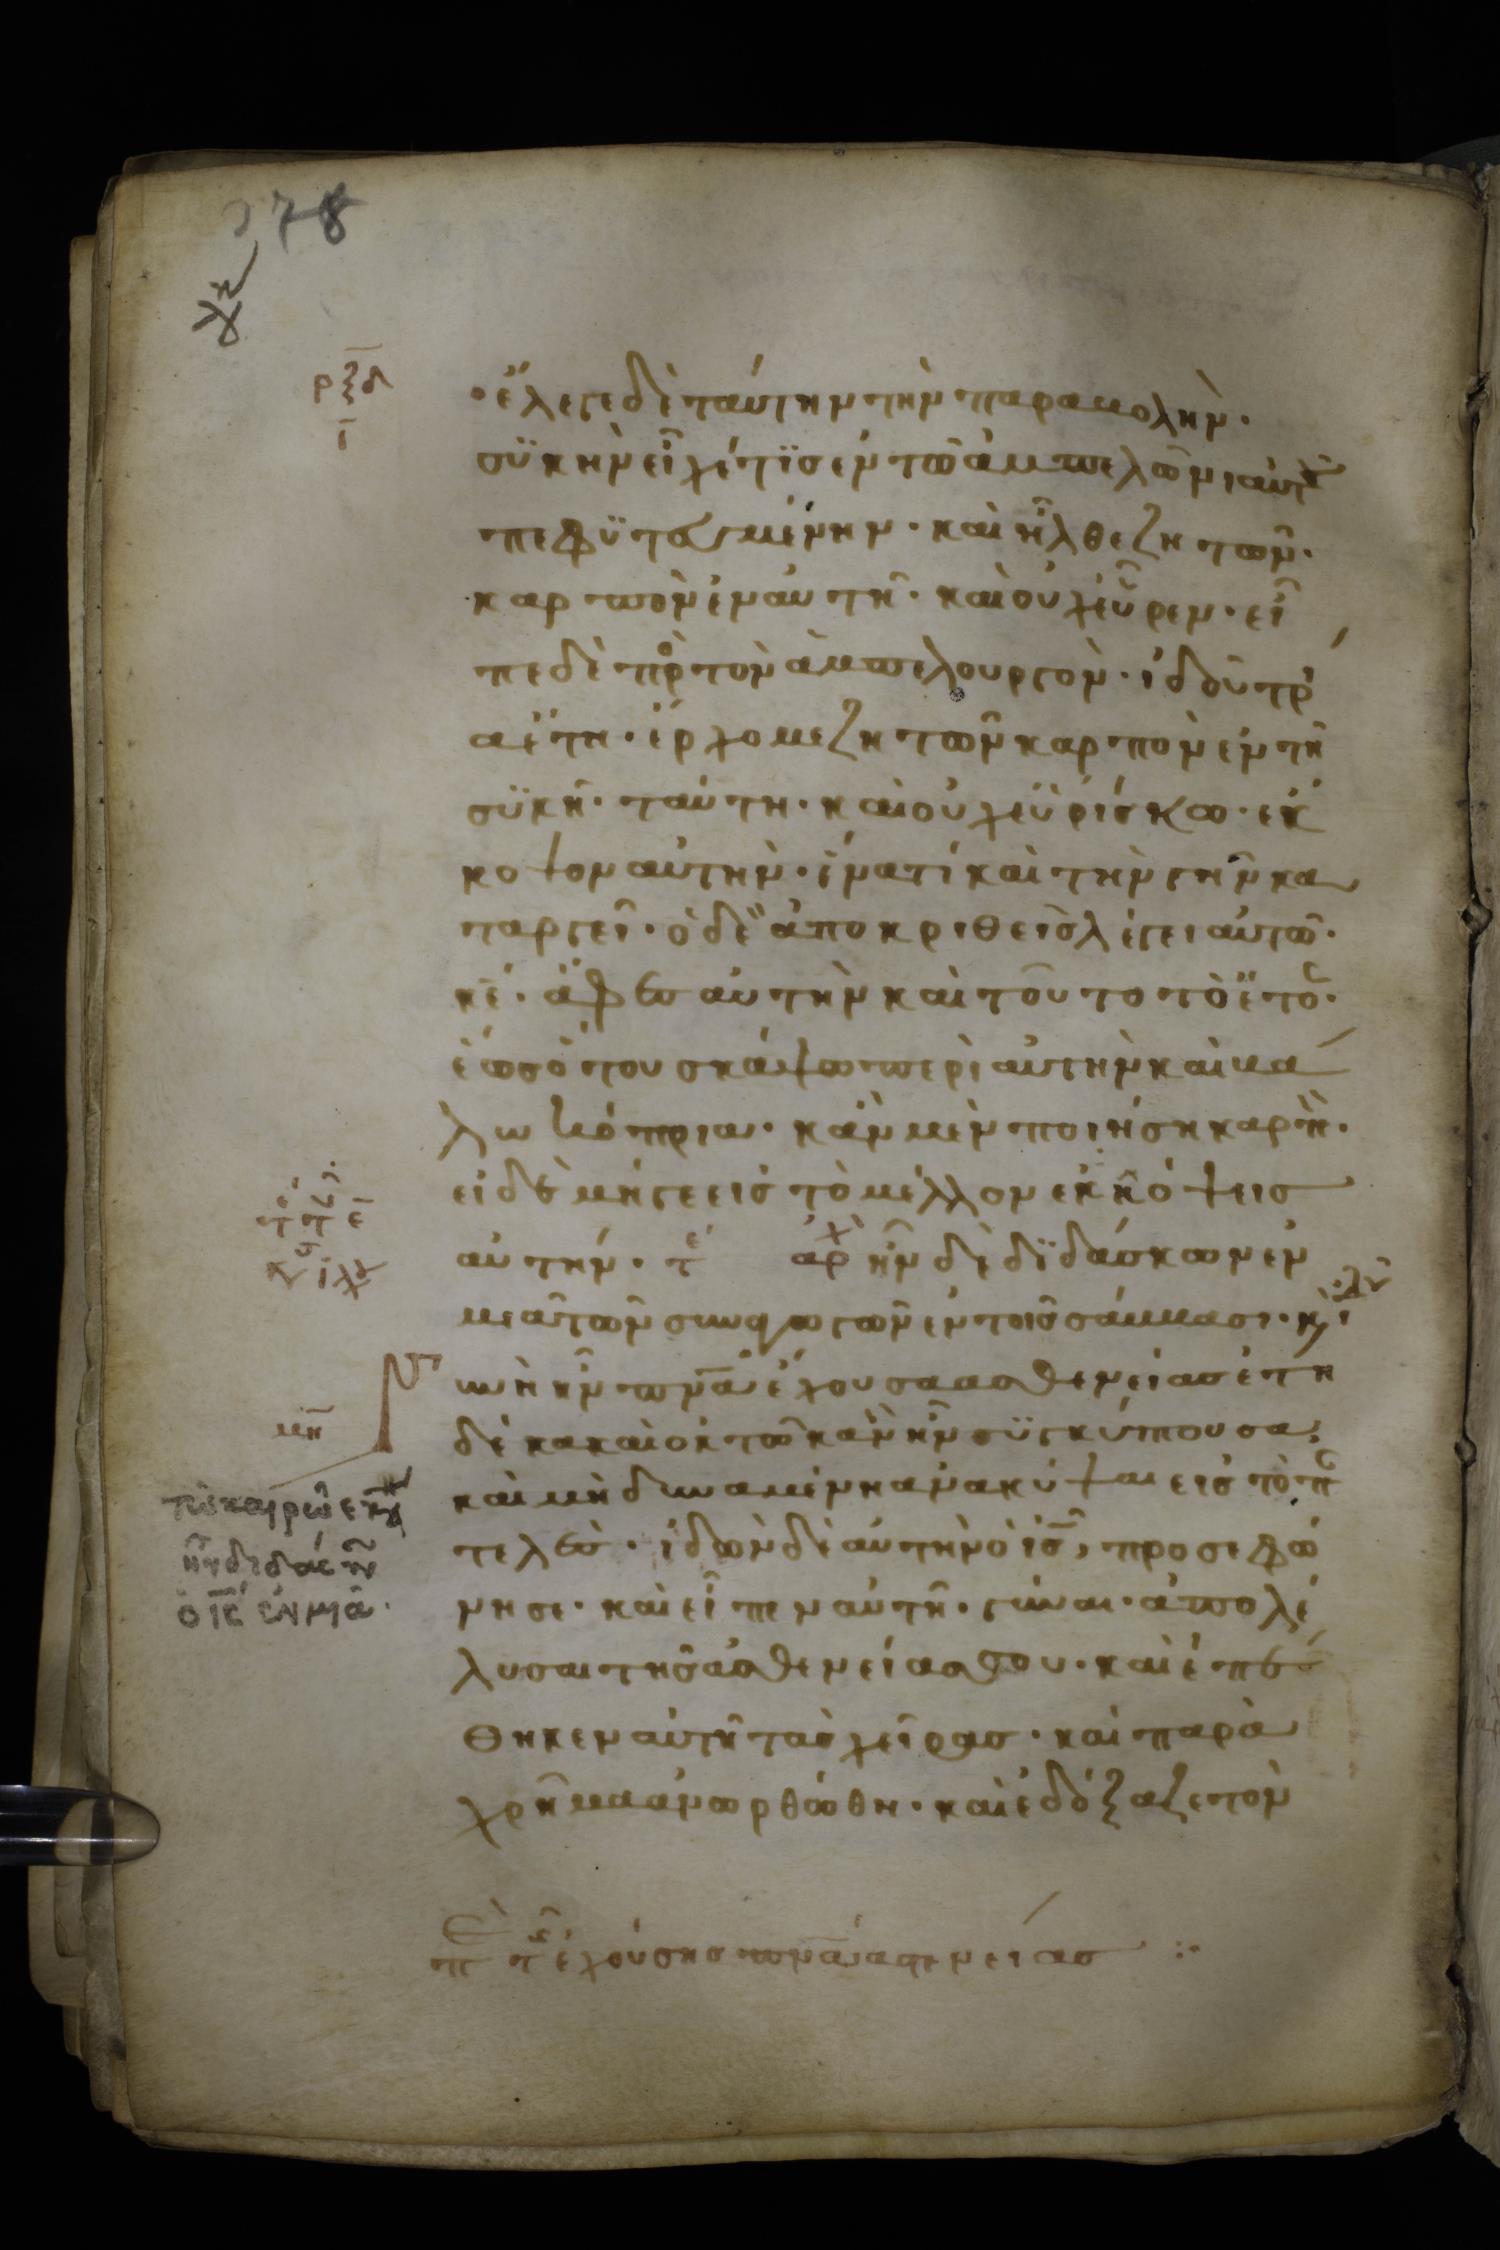 278
ρξδ
ι
· ἔλεγε δὲ ταύτην τὴν παραβολήν·
συκὴν εἶχέ τϊσ ἐν τῶ ἀμπελῶνι αὐτοῦ
πεφϋτευμένην · καὶ ἦλθε ζητῶν·
καρπὸν ἐν αὐτῆ · καὶ οὐχ εὗρεν · εἶ
πε δὲ πρὸσ τὸν ἀμπελουργὸν · ἰδοὺ τρί
α ἔτη · ἔρχομε ζητῶν καρπὸν ἐν τῆ
σϋκῆ · ταύτη · καὶ οὐχ εὑρίσκω · ἔκ
κοψον αὐτὴν · ἱνατί καὶ τὴν γῆν κα
ταργεῖ · ὁ δὲ ἀποκριθεὶσ λέγει αὐτῶ ·
κε · ἄφεσ αὐτὴν καὶ τοῦτο τὸ ἔτοσ ·
ἕωσ ὅτου σκάψω περὶ αὐτὴν καὶ βά
λω κόπρια · κἂν μὲν ποιήση καρπὸν ·
εἰ δὲ μήγε εἰσ τὸ μέλλον ἐκκόψεισ
αὐτήν · τε αρχ ἦν δὲ διδάσκων ἐν
μιᾶ τῶν συναγωγῶν ἐν τοῖσ σάββασι · κὶ ἰδοὺ
γυνὴ ἦν πνα ἔχουσα ἀσθενείασ ἔτη
δέκα καὶ οκτῶ καὶ ἦν σϋγκύπτουσα
καὶ μὴ δυναμένη ἀνακύψαι εἰσ τὸ παν
τελέσ · ἰδὼν δὲ αὐτὴν ὁ ισ, προσεφώ
νησε · καὶ εἶπεν αὐτῆ · γύναι · ἀπολέ
λυσαι τῆσ ἀσθενείασ σου · καὶ ἐπέ
θηκεν αὐτῆ τὰσ χεῖρασ · καὶ παρὰ
χρῆμα ἀνωρθώθη · καὶ ἐδόξαζε τὸν
μη
τῶ καιρῶ ἐκεί
ἦν διδάσκων
ὁ ισ ἐν μιᾶ ·
π τ ἐχούσησ πνα ἀσθενείασ